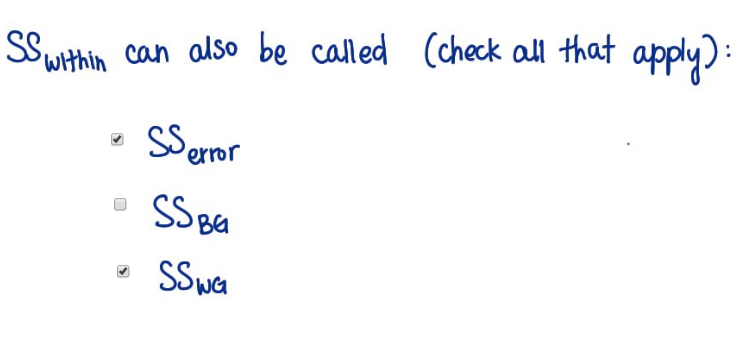 SSwithin can also be called (check all that apply):
SSerror
SSBG
SSWG